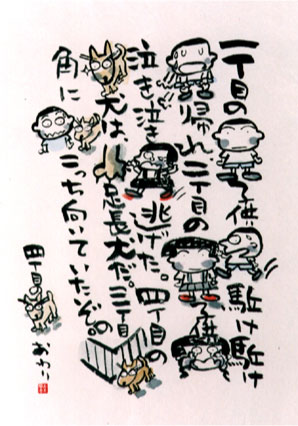 一丁目の子供駈け駈け
帰れ二丁目の子供
泣き泣き逃げた。四丁目の
犬は足長犬だ。三丁目の
角にこっち向いていたぞ。
四丁目の
おわり